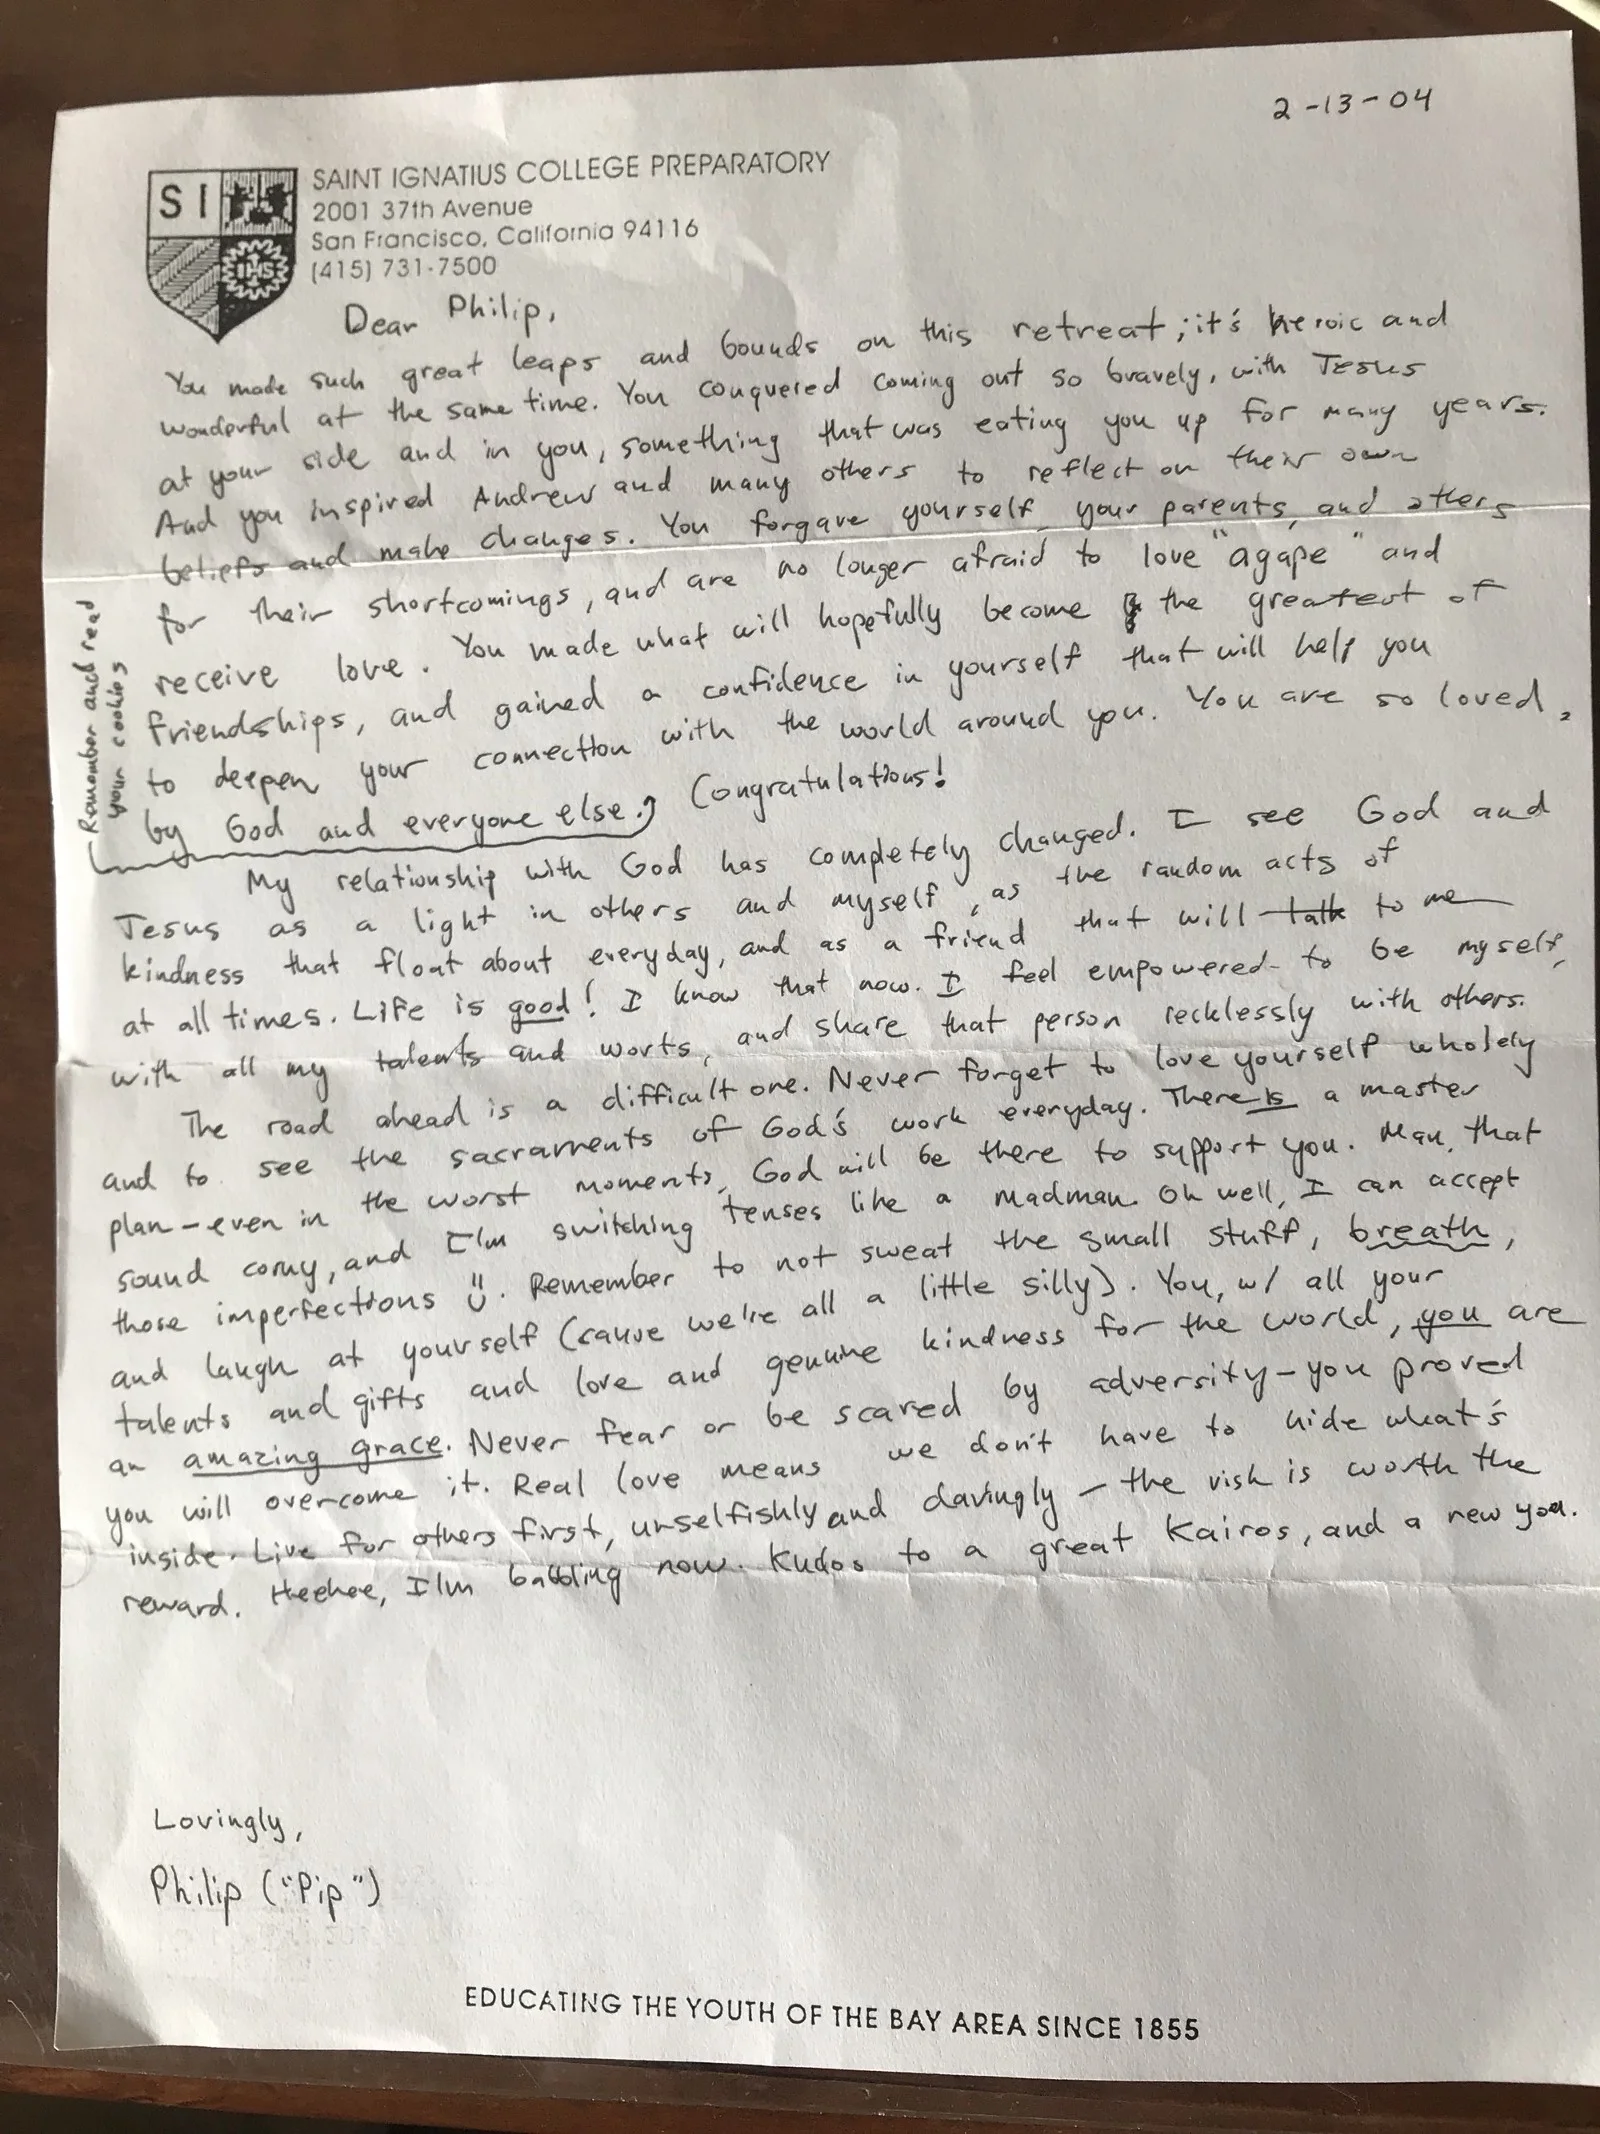 2-13-04
SI
IHS
SAINT IGNATIUS COLLEGE PREPARATORY
2001 37th Avenue
San Francisco, California 94116
(415) 731-7500
Dear Philip,
You made such great leaps and bounds on this retreat; it's heroic and
wonderful at the same time. You conquered coming out so bravely, with Jesus
at your side and in you, something that was eating you up for many years.
And you inspired Andrew and many others to reflect on their own
beliefs and make changes. You forgave yourself, your parents, and others
for their shortcomings, and are no longer afraid to love "agape" and
receive love. You made what will hopefully become the greatest of
friendships, and gained a confidence in yourself that will help you
to deepen your connection with the world around you. You are so loved,
by God and everyone else. Congratulations!
Remember and read
your cookies
My relationship with God has completely changed. I see God and
Jesus as a light in others and myself, as the random acts of
kindness that float about everyday, and as a friend that will talk to me
at all times. Life is good! I know that now. I feel empowered to be myself,
with all my talents and worts, and share that person recklessly with others.
The road ahead is a difficult one. Never forget to love yourself wholely
and to see the sacraments of God's work everyday. There is a master
plan - even in the worst moments, God will be there to support you. Man, that
sound corny, and I'm switching tenses like a madman. Oh well, I can accept
those imperfections. Remember to not sweat the small stuff, breath,
and laugh at yourself (cause we're all a little silly). You, w/ all your
talents and gifts and love and genuine kindness for the world, you are
an amazing grace. Never fear or be scared by adversity - you proved
you will overcome it. Real love means we don't have to hide what's
inside. Live for others first, unselfishly and davingly - the risk is worth the
reward. Heehee, I'm babbling now. Kudos to a great Kairos, and a new you.
Lovingly,
Philip ("Pip")
EDUCATING THE YOUTH OF THE BAY AREA SINCE 1855